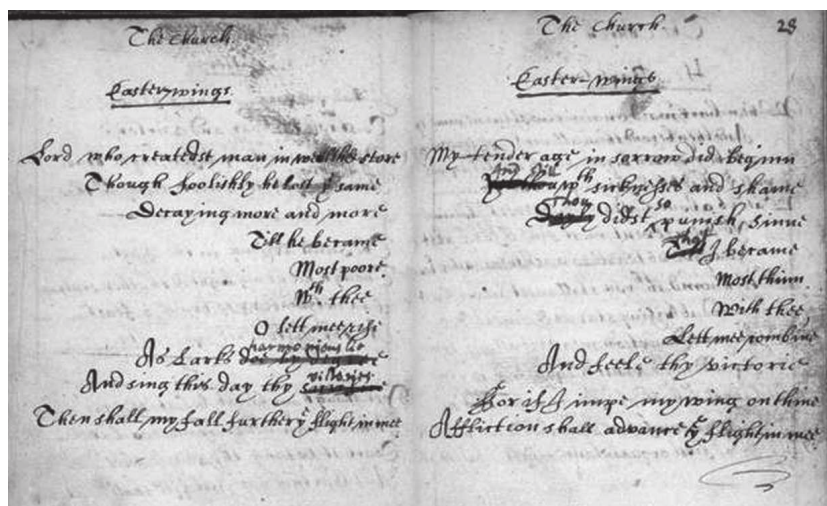 The Church.
Easter-wings
Lord who createdst man in wealth & store
Though foolishly he lost yᵉ same
Decaying more and more
Till he became
Most poore.
Wᵗʰ thee
O lett mee rise
harmoniouslie
As Larks doe by degree
victories
And sing this day thy sacrifice
Then shall my fall further yᵉ flight in mee
The Church. 28
Easter-wings
My tender age in sorrow did beginn
And still
Yet thou wᵗʰ sicknesses and shame
Thou so
Dayly didst punish sinne
That I became
Most thinn
With thee
Lett mee combine
And feele thy victorie
For if I impe my wing on thine
Affliction shall advance yᵉ flight in mee